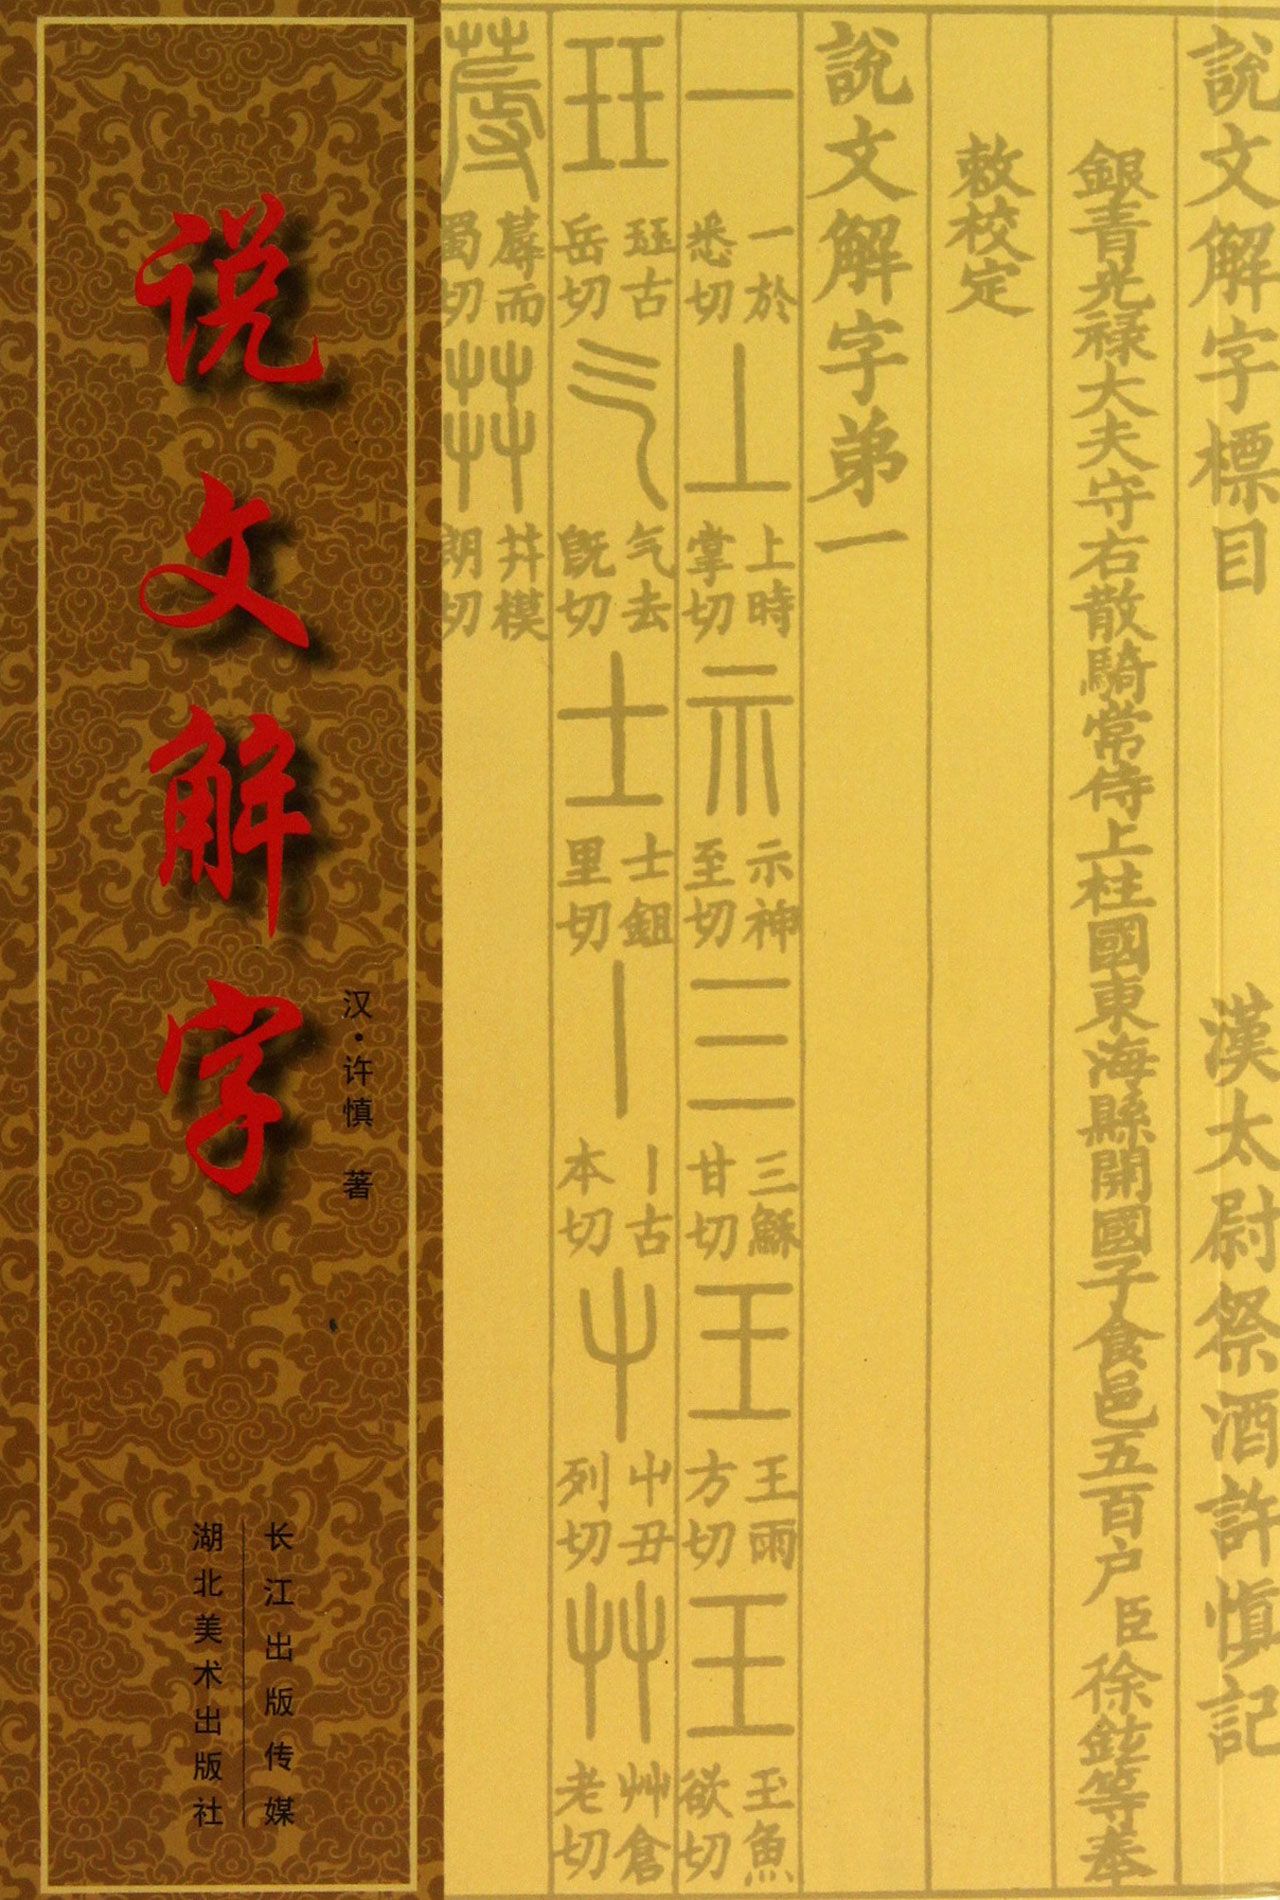 说文解字
汉·许慎 著
长江出版传媒
湖北美术出版社
說文解字標目
漢太尉祭酒許慎記
銀青光祿大夫守右散騎常侍上柱國東海縣開國子食邑五百户臣徐鉉等奉
敕校定
說文解字弟一
一 一於悉切 丄 上時掌切 示 示神至切 三 三穌甘切 王 王雨方切 王 玉魚欲切
玨 珏古岳切 气 气去旣切 士 士鉏里切 丨 丨古本切 屮 屮丑列切 艸 艸倉老切
蓐 蓐而蜀切 茻 茻模朗切